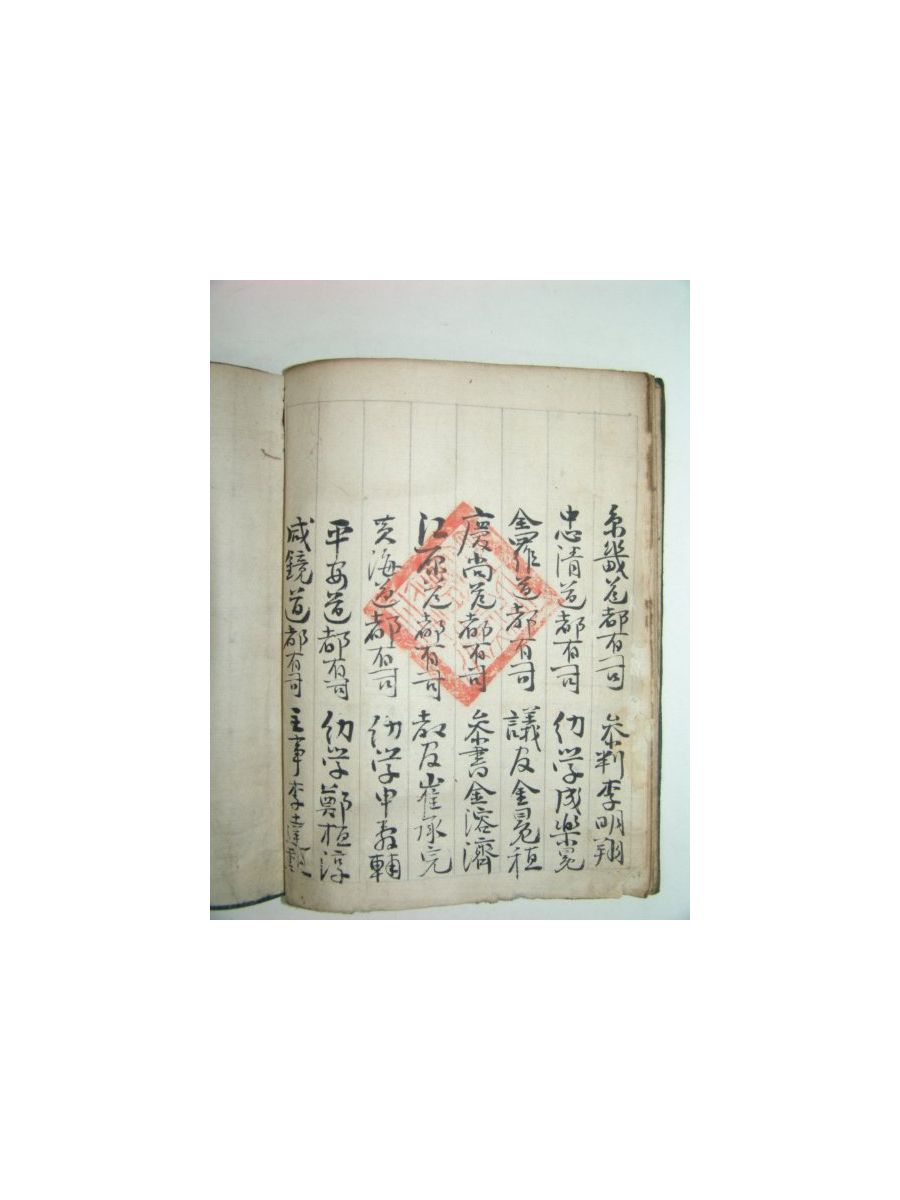 京畿道都有司 參判李明翔
忠清道都有司 幼学成樂冕
全羅道都有司 議官金冕桓
慶尚道都有司 參書金溶濟
江原道都有司 都正崔承完
黃海道都有司 幼学申 輔
平安道都有司 幼学鄭桓淳
咸鏡道都有司 主事李達